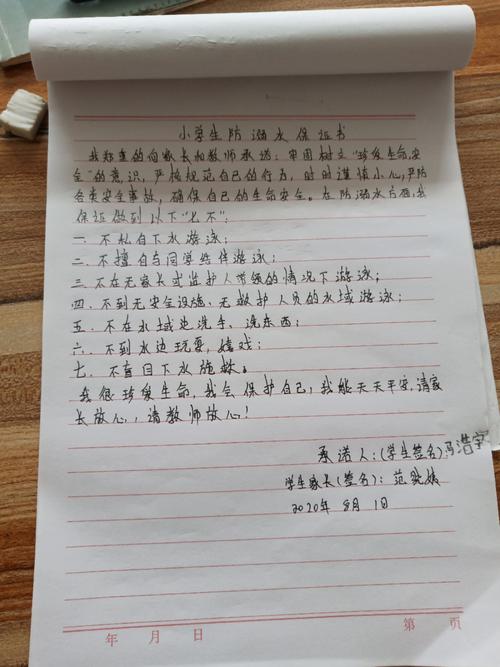 小学生防溺水保证书
我郑重的向家长和教师承诺：牢固树立“珍爱生命，安
全”的意识，严格规范自己的行为，时时谨慎小心，严防
各类安全事故，确保自己的生命安全。在防溺水方面，我
保证做到以下“七不”：
一．不私自下水游泳；
二．不擅自与同学结伴游泳；
三．不在无家长或监护人带领的情况下游泳；
四．不到无安全设施、无救护人员的水域游泳；
五．不在水域边洗手、洗东西；
六．不到水边玩耍，嬉戏；
七．不盲目下水施救。
我很珍爱生命，我会保护自己，我能天天平安，请家
长放心，请教师放心！
承诺人：(学生签名)：冯浩宇
学生家长(签名)：范
2020年 8月 1日
年 月 日 第 页